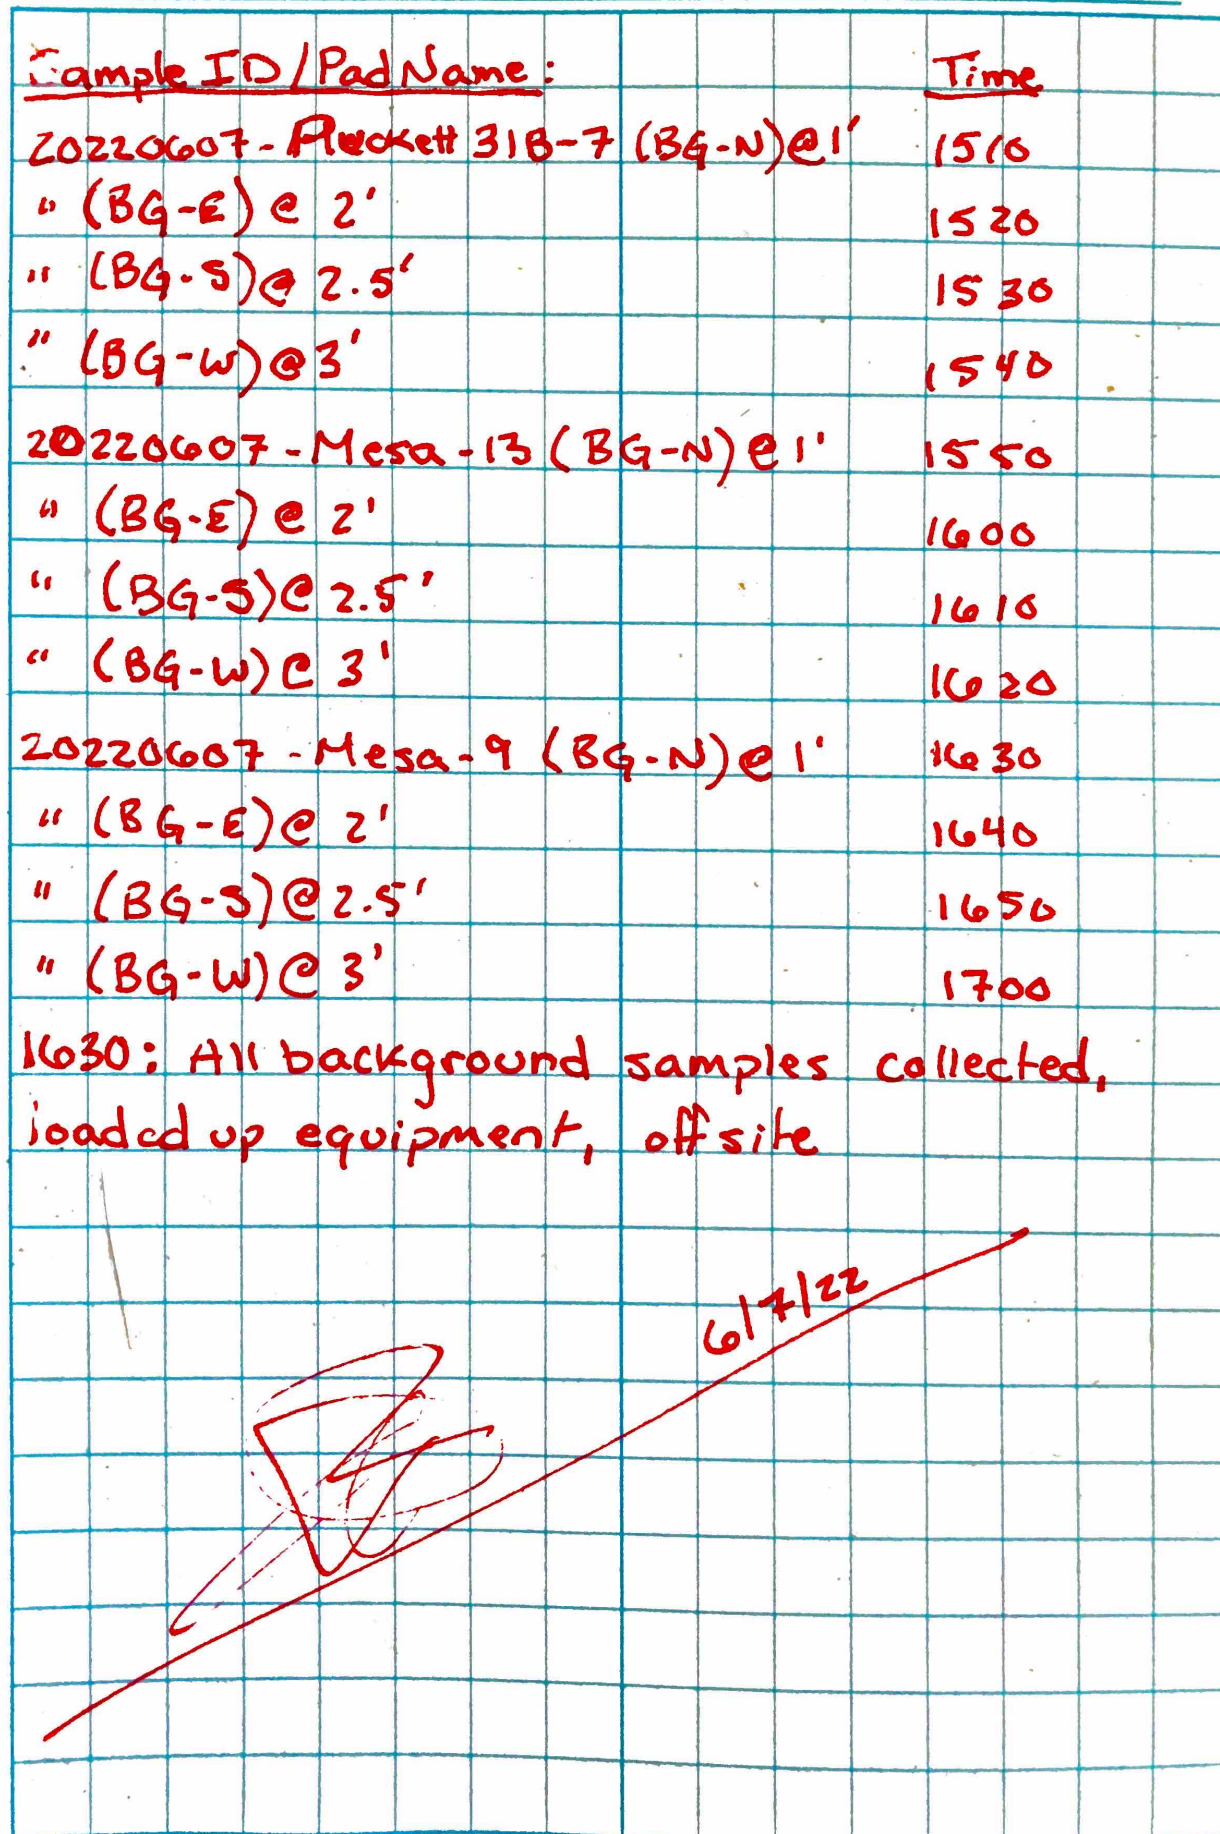 Sample ID/Pad Name: Time
20220607-Pluckett 31B-7 (BG-N)@1' 1510
" (BG-E)@ 2' 1520
" (BG-S)@ 2.5' 1530
" (BG-W)@3' 1540
20220607-Mesa-13 (BG-N)@1' 1550
" (BG-E)@ 2' 1600
" (BG-S)@ 2.5' 1610
" (BG-W)@ 3' 1620
20220607-Mesa-9 (BG-N)@1' 1630
" (BG-E)@ 2' 1640
" (BG-S)@2.5' 1650
" (BG-W)@ 3' 1700
1630: All background samples collected,
loaded up equipment, offsite
6/7/22